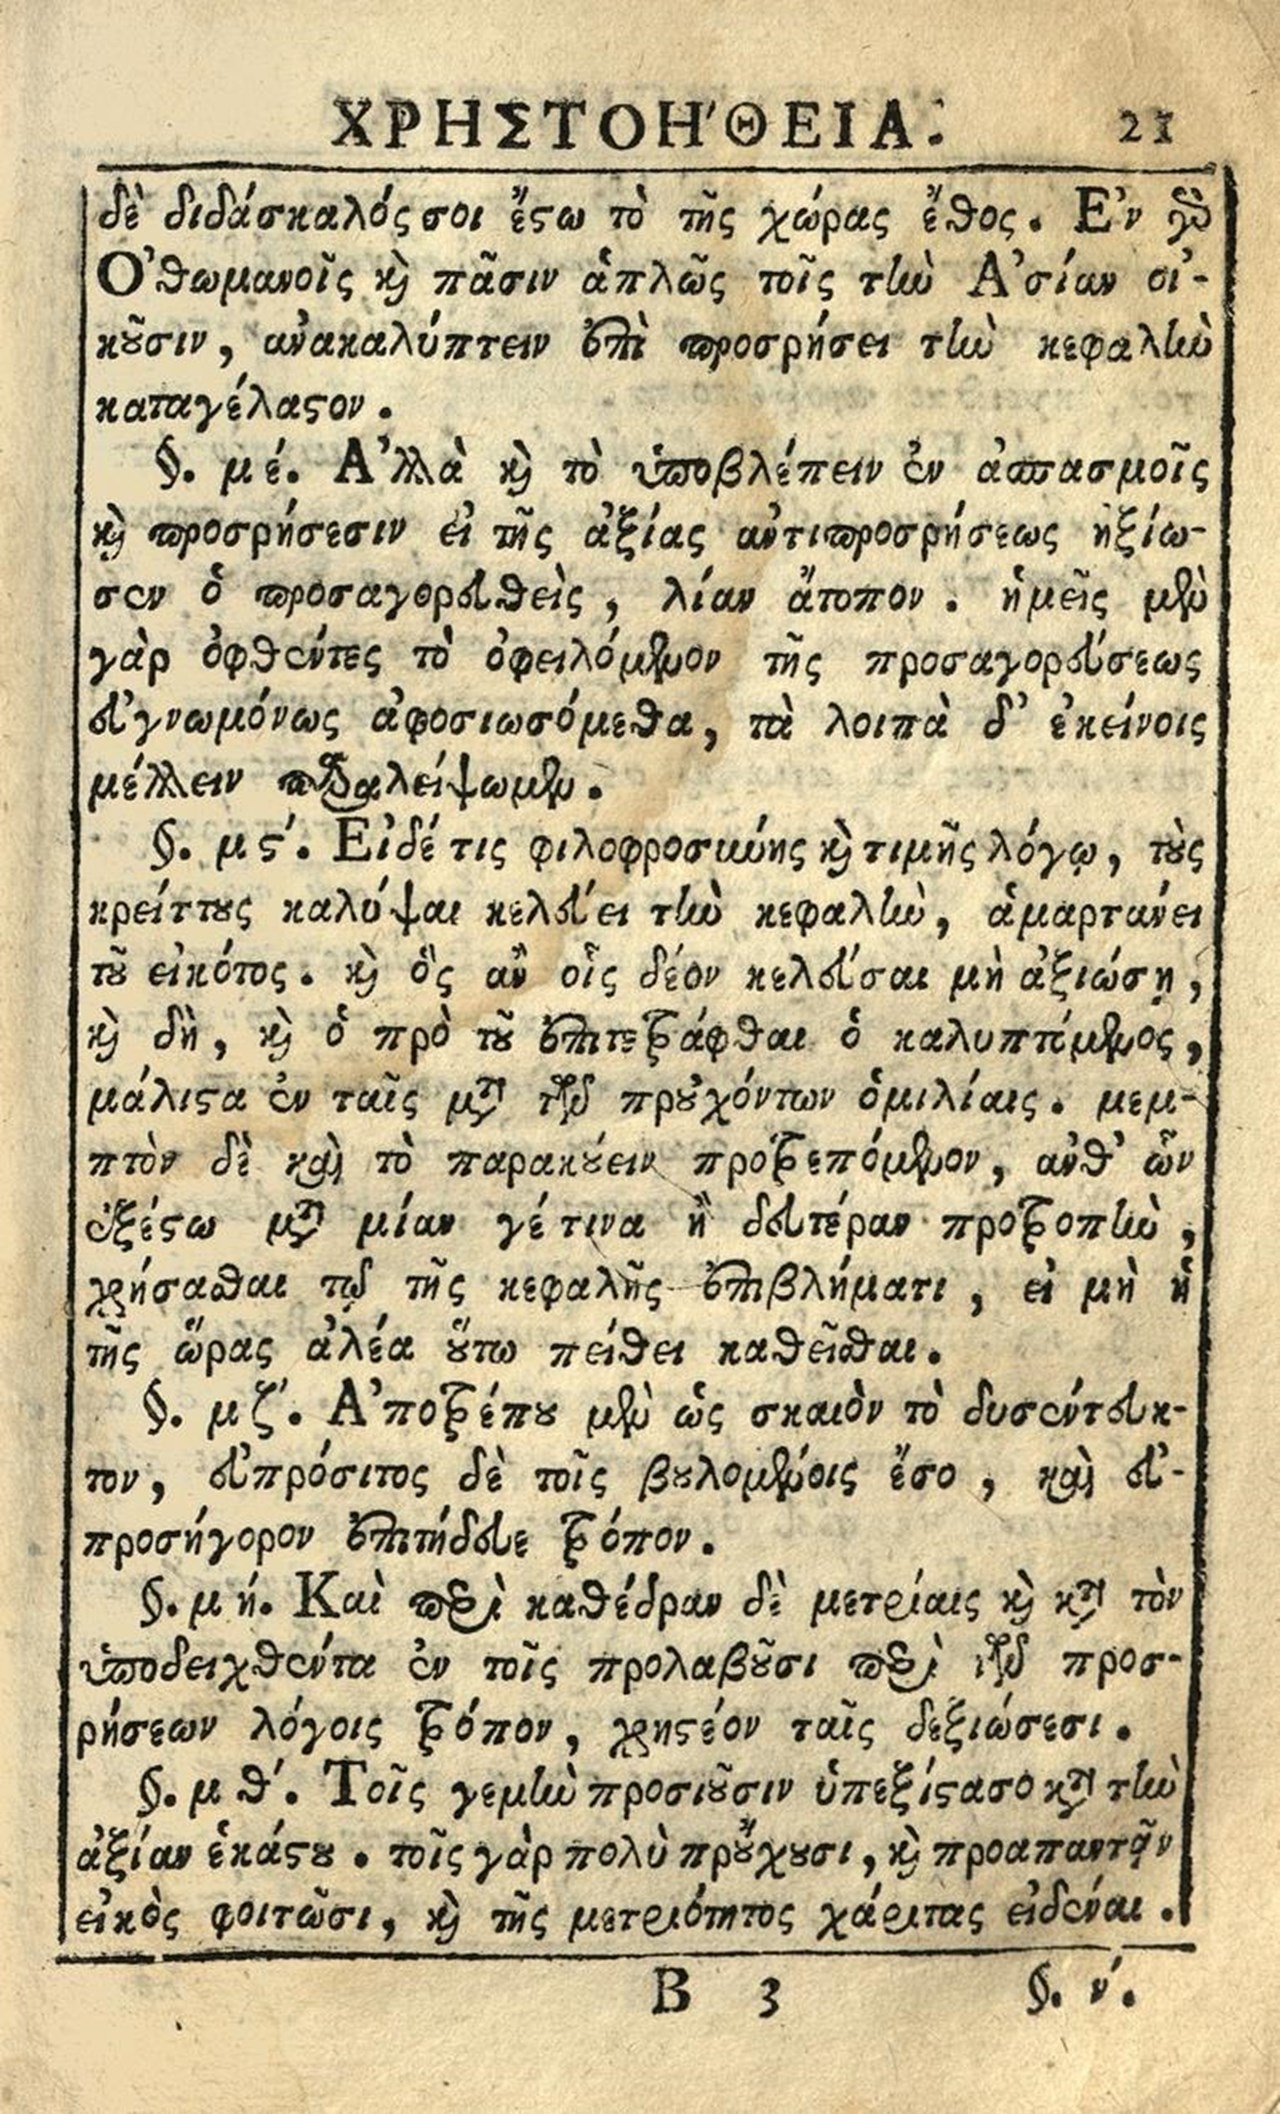 ΧΡΗΣΤΟΗ'ΘΕΙΑ. 21
δὲ διδάσκαλός σοι ἔςω τὸ τῆς χώρας ἔθος. Ε'ν γὸ
Ο'θωμανοῖς ϗ̀ πᾶσιν ἁπλῶς τοῖς τὴν Α'σίαν οἰ-
κȣ͂σιν, ἀνακαλύπτειν ἐπὶ προσρήσει τὴν κεφαλὴν
καταγέλαςον.
§. μέ. Α'λλὰ ϗ̀ τὸ ὑποβλέπειν ἐν ἀσπασμοῖς
ϗ̀ προσρήσεσιν εἰ τῆς ἀξίας ἀντιπροσρήσεως ἠξίω-
σεν ὁ προσαγορευθεὶς, λίαν ἄτοπον. ἡμεῖς μὲν
γὰρ ὀφθέντες τὸ ὀφειλόμενον τῆς προσαγορεύσεως
εὐγνωμόνως ἀφοσιωσόμεθα, τὰ λοιπὰ δ' ἐκείνοις
μέλλειν παραλείψωμεν.
§. μς΄. Εἰδέ τις φιλοφροσύνης ϗ̀ τιμῆς λόγῳ, τȣ̀ς
κρείττȣς καλύψαι κελεύει τὴν κεφαλὴν, ἁμαρτάνει
τȣ͂ εἰκότος. ϗ̀ ὃς ἂν οἷς δέον κελεῦσαι μὴ ἀξιώσῃ,
ϗ̀ δὴ, ϗ̀ ὁ πρὸ τȣ͂ ἐπιτετράφθαι ὁ καλυπτόμενος,
μάλιςα ἐν ταῖς μετὰ τῶν πρȣχόντων ὁμιλίαις. μεμ-
πτὸν δὲ καὶ τὸ παρακȣ́ειν προτρεπόμενον, ἀνθ' ὧν
ἐξέςω μετὰ μίαν γέ τινα ἢ δευτέραν προτροπὴν,
χρήσασθαι τῷ τῆς κεφαλῆς ἐπιβλήματι, εἰ μὴ ἡ
τῆς ὥρας ἀλέα ȣ̔́τω πείθει καθεῖσθαι.
§. μζ΄. Α'ποτρέπȣ μὲν ὡς σκαιὸν τὸ δυσέντευκ-
τον, εὐπρόσιτος δὲ τοῖς βȣλομένοις ἔσο, καὶ εὐ-
προσήγορον ἐπιτήδευε τρόπον.
§. μ ή. Καὶ περὶ καθέδραν δὲ μετρίαις ϗ̀ κατὰ τὸν
ὑποδειχθέντα ἐν τοῖς προλαβȣ͂σι περὶ τῶν προσ-
ρήσεων λόγοις τρόπον, χρηςέον ταῖς δεξιώσεσι.
§. μ θ΄. Τοῖς γεμὴν προσιȣ͂σιν ὑπεξίςασο κατὰ τὴν
ἀξίαν ἑκάςȣ. τοῖς γὰρ πολὺ πρȣ́χȣσι, ϗ̀ προαπαντᾷν
εἰκὸς φοιτῶσι, ϗ̀ τῆς μετριότητος χάριτας εἰδέναι.
Β 3 §. ν΄.